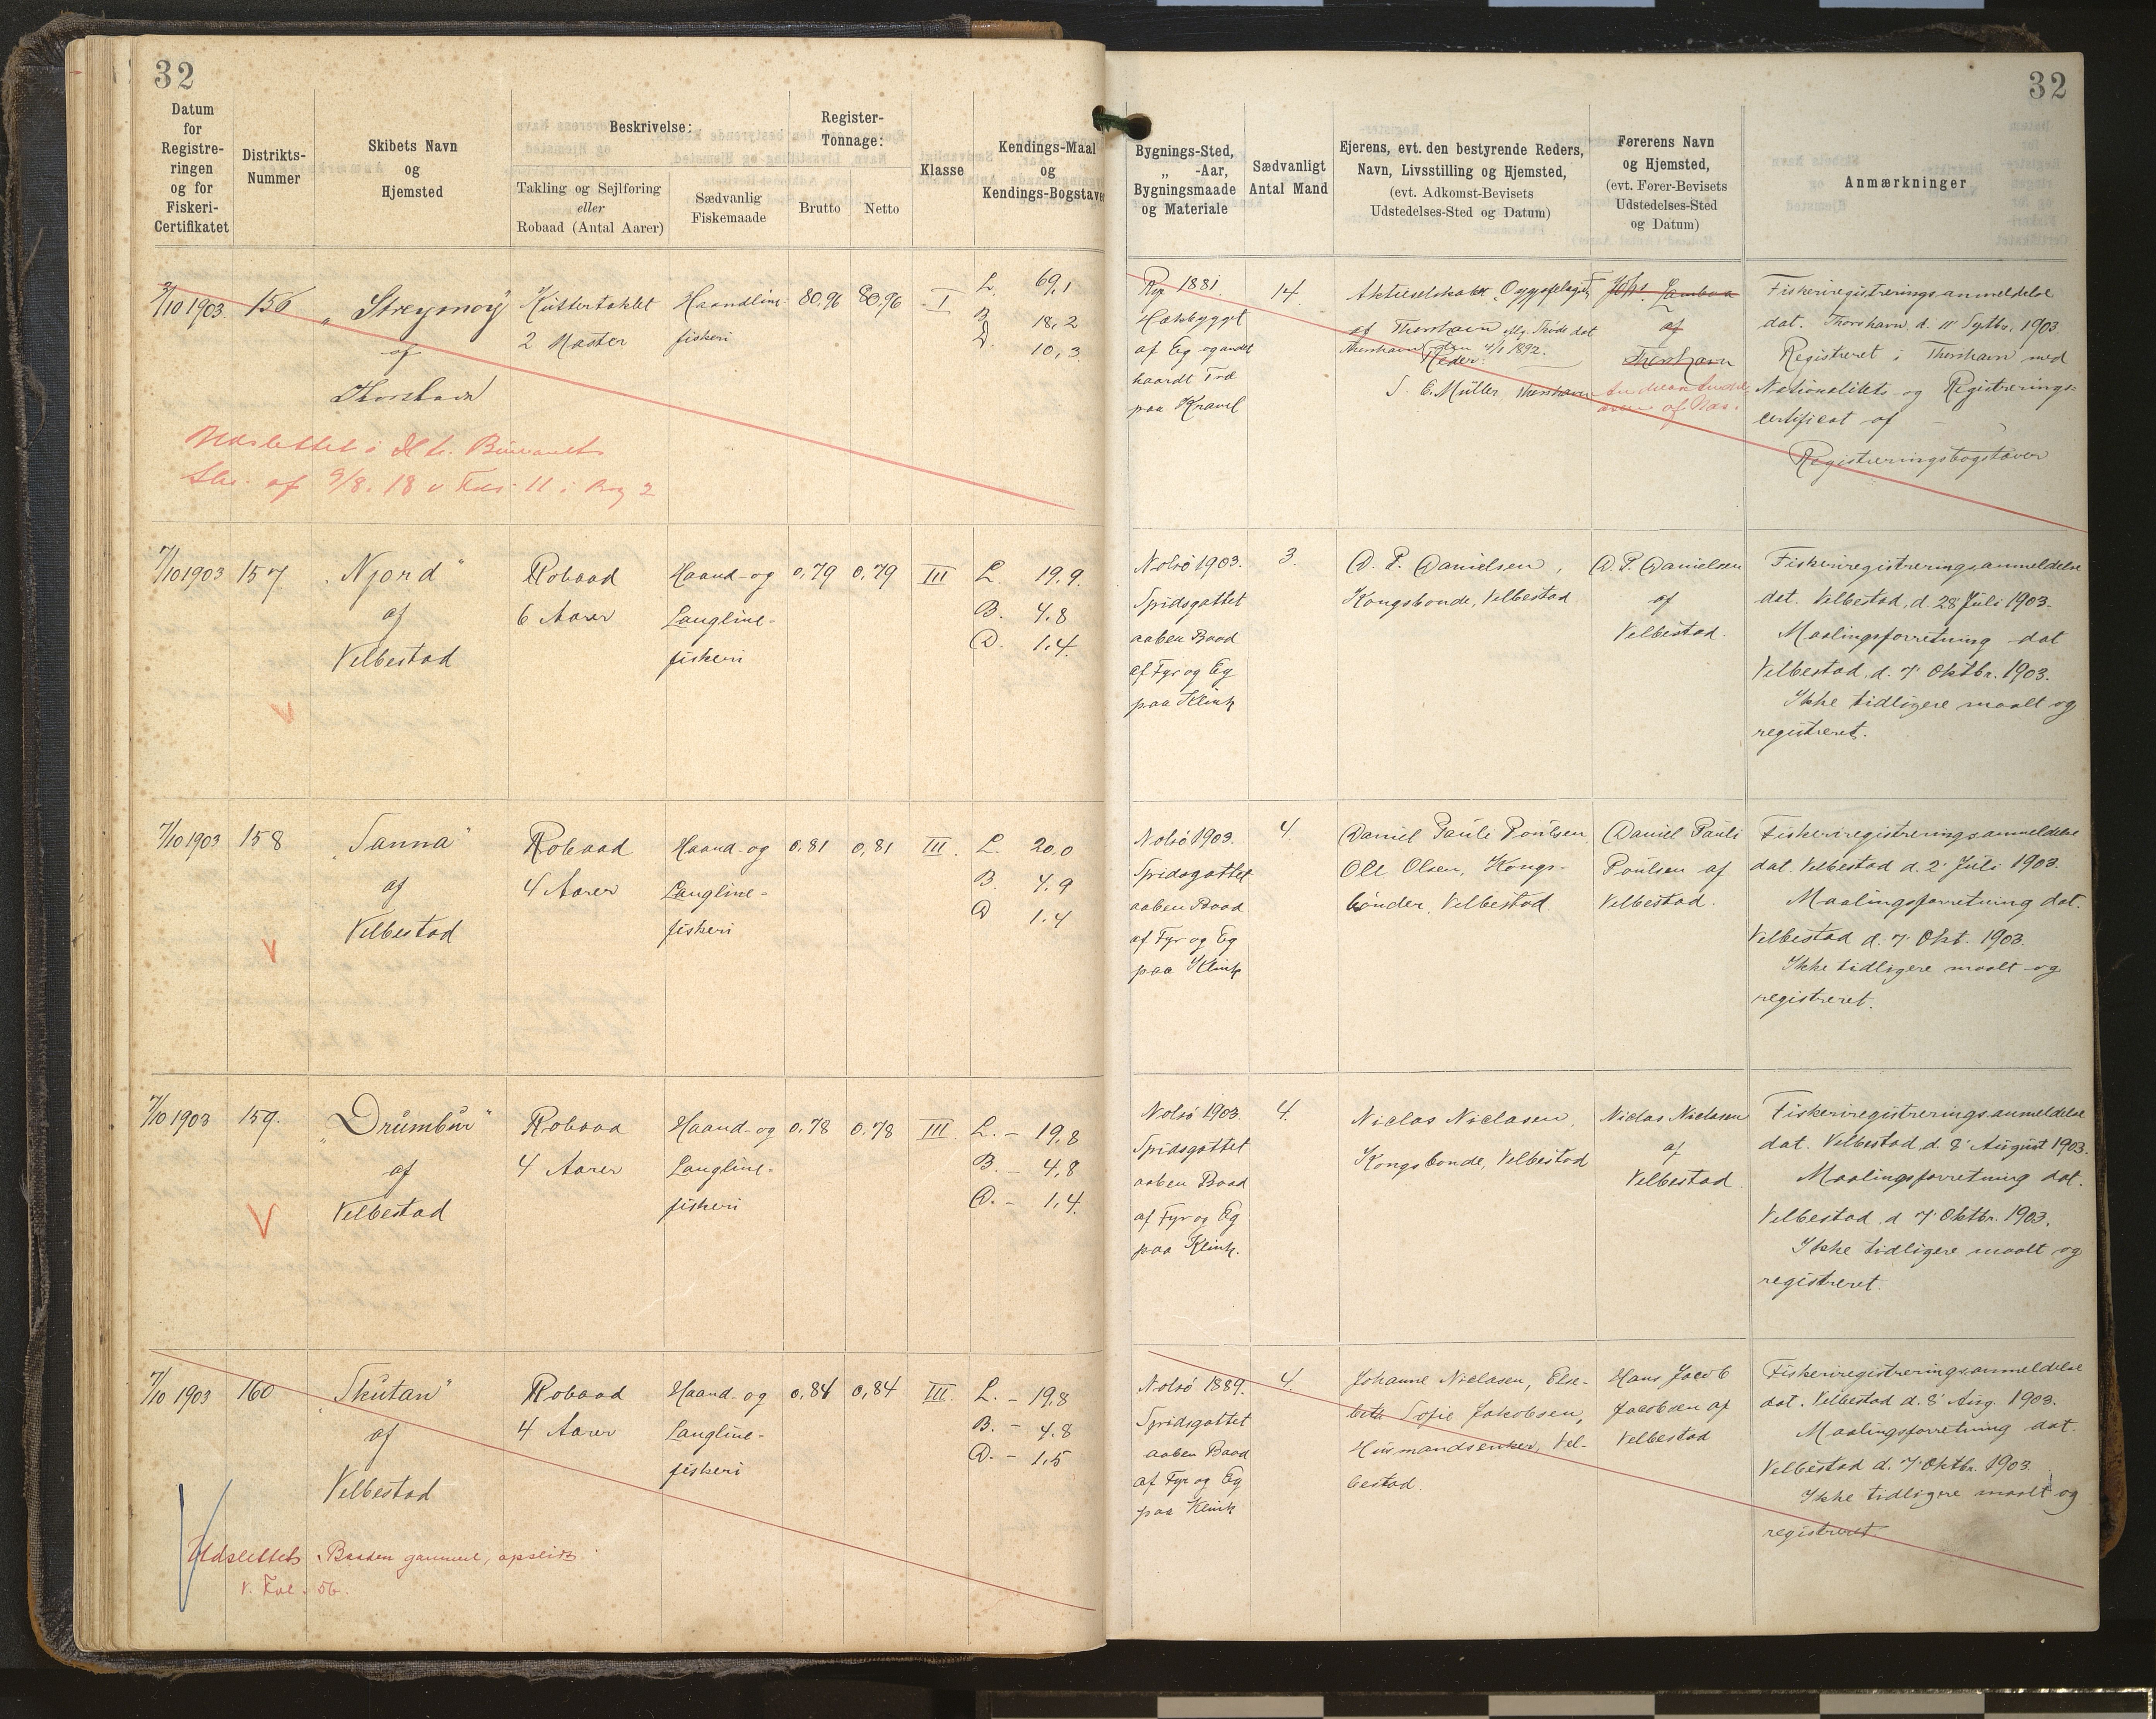 32
Datum
for
Registre-
ringen
og for
Fiskeri-
Certifikatet
Distrikts-
Nummer
Skibets Navn
og
Hjemsted
Beskrivelse:
Takling og Sejlføring
eller
Robaad (Antal Aarer)
Sædvanlig
Fiskemaade
Register-
Tonnage:
Brutto
Netto
Klasse
Kendings-Maal
og
Kendings-Bogstaver
10 1903. 156 "Streymoy" Kuttertaklet Haandline- 80.96 80.96 I L. 69,1
af 2 Master fiskeri B. 18,2
Thorshavn D. 10,3
Udslettet i
af 9/8. 18 v Fol. 11 i Bog 2
7/10 1903 157. "Njord" Robaad Haand- og 0,79 0,79 III L. 19.9.
af 6 Aarer Langline- B. 4.8
Velbestad fiskeri D. 1,4.
7/10 1903 158 "Sanna" Robaad Haand- og 0,81 0,81 III. L. 20.0
af 4 Aarer Langline- B. 4.9
Velbestad fiskeri D 1.4
7/10 1903 159. "Drumbur" Robaad Haand- og 0,78 0.78 III. L. - 19,8
af 4 Aarer Langline- B. - 4,8
Velbestad fiskeri D. - 1,4.
7/10 1903 160 "Skutan" Robaad Haand- og 0,84 0,84 III. L. - 19,8
af 4 Aarer Langline- B. - 4.8
Velbestad fiskeri D. - 1,5
Udslettet. Baaden gammel, opslidt
v. Fol. 56.
32
Bygnings-Sted,
„ -Aar,
Bygningsmaade
og Materiale
Sædvanligt
Antal Mand
Ejerens, evt. den bestyrende Reders,
Navn, Livsstilling og Hjemsted,
(evt. Adkomst-Bevisets
Udstedelses-Sted og Datum)
Førerens Navn
og Hjemsted,
(evt. Fører-Bevisets
Udstedelses-Sted
og Datum)
Anmærkninger
Rye 1881.
Hækbygget
af Eg og andet
haardt Træ
paa Kravel
14.
Aktieselskabet
af Thorshavn dat
Thorshavn den 4/1 1892.
Reder:
Müller, Thorshavn
af
Thorshavn
af
Fiskeriregistreringsanmeldelse
dat. Thorshavn, d. 11' Septbr. 1903.
Registreret i Thorshavn med
Nationalitets- og Registrerings-
certificat af
Registreringsbogstaver
Nolsö 1903.
Spidsgattet
aaben Baad
af Fyr og Eg
paa Klink
3.
D. P. Danielsen,
Kongsbonde, Velbestad
D. P. Danielsen
af
Velbestad.
Fiskeriregistreringsanmeldelse
dat. Velbestad, d. 28' Juli 1903.
Maalingsforretning dat
Velbestad, d. 7' Oktbr. 1903.
Ikke tidligere maalt og
registreret.
Nolsö 1903.
Spidsgattet
aaben Baad
af Fyr og Eg
paa Klink
4.
Daniel Pauli Poulsen,
Ole Olsen, Kongs-
bönder, Velbestad.
Daniel Pauli
Poulsen af
Velbestad.
Fiskeriregistreringsanmeldelse
dat. Velbestad d. 2' Juli 1903.
Maalingsforretning dat.
Velbestad d. 7' Okt. 1903.
Ikke tidligere maalt og
registreret.
Nolsö 1903.
Spidsgattet
aaben Baad
af Fyr og Eg
paa Klink.
4.
Niclas Niclasen,
Kongsbonde, Velbestad
Niclas Niclasen
af
Velbestad.
Fiskeriregistreringsanmeldelse
dat. Velbestad d. 8' August 1903.
Maalingsforretning dat.
Velbestad d. 7' Oktbr. 1903.
Ikke tidligere maalt og
registreret.
Nolsö 1889.
Spidsgattet
aaben Baad
af Fyr og Eg
paa Klink
4.
Johanne Niclasen, Else-
beth Sofie Jakobsen,
Husmandsenker, Vel-
bestad.
Hans Jacob
Jacobsen af
Velbestad
Fiskeriregistreringsanmeldelse
dat. Velbestad d. 8' Aug. 1903.
Maalingsforretning dat.
Velbestad d. 7' Oktbr. 1903.
Ikke tidligere maalt og
registreret